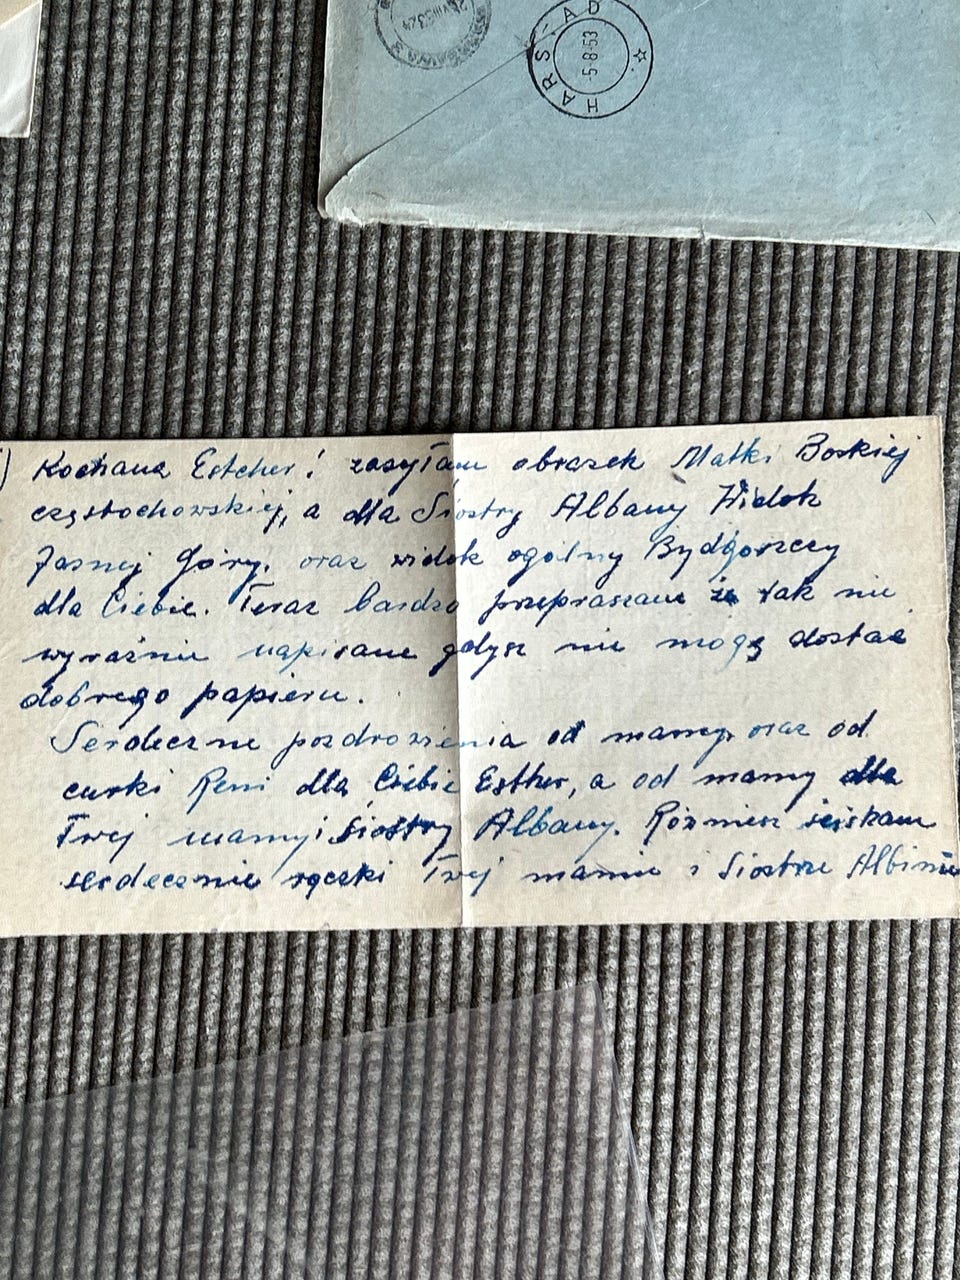 HARSTAD
-5-8-53
Kochana Estcher! zasyłam obrazek Matki Boskiej
częstochowskiej, a dla Siostry Albany Widok
Jasnej Góry, oraz widok ogólny Bydgoszczy
dla Ciebie. Teraz bardzo przepraszam że tak nie
wyraźnie napisane gdysz nie mogę dostać
dobrego papieru.
Serdeczne pozdrowienia od mamy, oraz od
curki Reni dla Ciebie Esther, a od mamy dla
Twej mamy i Siostry Albany. Rózniesz ściskam
serdecznie rączki Twej mamie i Siostrze Albinie